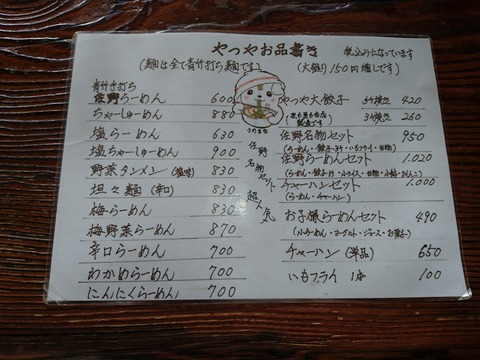 やつやお品書き
税込みになっています
(麺は全て青竹打ち麺です)
(大盛り150円増しです)
青竹手打ち
佐野らーめん 600
ちゃーしゅーめん 880
塩らーめん 630
塩ちゃーしゅーめん 900
野菜タンメン (塩味) 830
坦々麺 (辛) 830
梅らーめん 830
梅野菜らーめん 870
辛口らーめん 700
わかめらーめん 700
にんにくらーめん 700
さのまる
佐野名物セット
超人気
やつや大餃子 5ケ焼き 420
3ケ焼き 260
佐野名物セット 950
(らーめん・餃子3ケ・いもフライ・甘物)
佐野らーめんセット 1,020
チャーハンセット 1,000
(らーめん・チャーハン)
お子様らーめんセット 490
(小らーめん・ヨーグルト・ジュース・お菓子)
チャーハン (単品) 650
いもフライ 1本 100